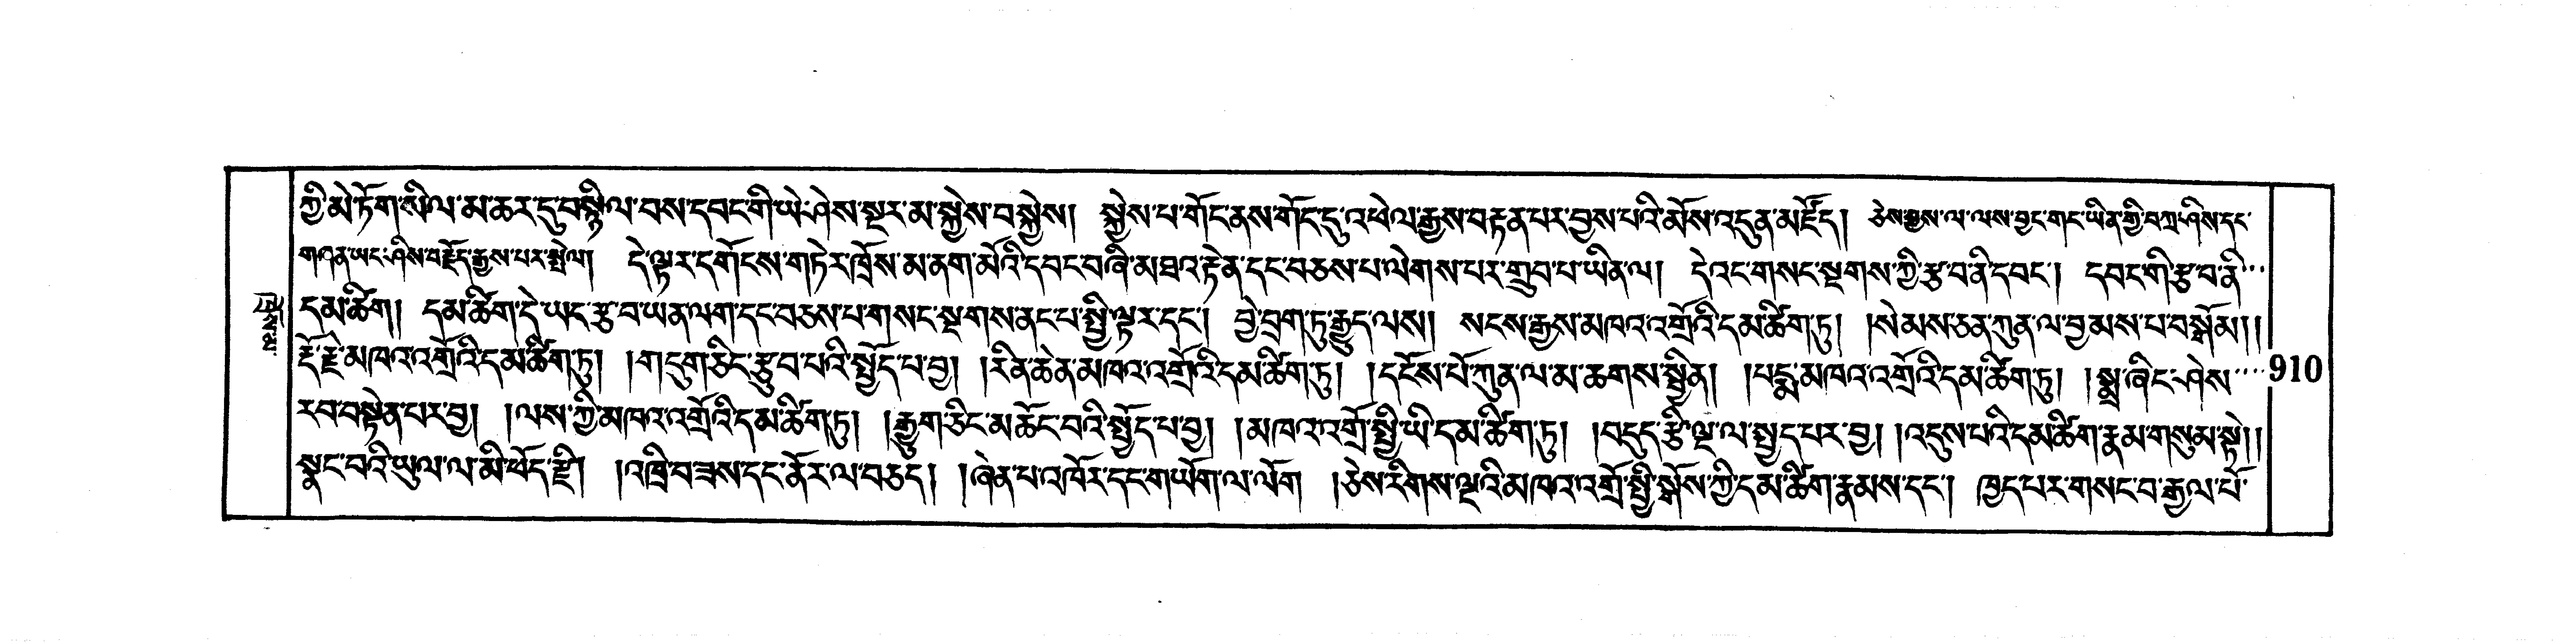 ཀྱི་མེ་ཏོག་སིལ་མ་ཆར་དུ་བསྙིལ་བས་དབང་གི་ཡེ་ཤེས་སྔར་མ་སྐྱེས་བསྐྱེས། སྐྱེས་པ་གོང་ནས་གོང་དུ་འཕེལ་རྒྱས་བརྟན་པར་བྱས་པའི་མོས་འདུན་མཛོད། ཅེས་བྱས་ལ་ལས་བྱང་གང་ཡིན་གྱི་བཀྲ་ཤིས་དང་
གཞན་ཡང་ཤིས་བརྗོད་རྒྱས་པར་སྤེལ། དེ་ལྟར་དགོངས་གཏེར་ཁྲོས་མ་ནག་མོའི་དབང་བཞི་མཐའ་རྟེན་དང་བཅས་པ་ལེགས་པར་གྲུབ་པ་ཡིན་ལ། དེའང་གསང་སྔགས་ཀྱི་རྩ་བ་ནི་དབང་། དབང་གི་རྩ་བ་ནི་
དམ་ཚིག། དམ་ཚིག་དེ་ཡང་རྩ་བ་ཡན་ལག་དང་བཅས་པ་གསང་སྔགས་ནང་པ་སྤྱི་ལྟར་དང་། བྱེ་བྲག་ཏུ་རྒྱུད་ལས། སངས་རྒྱས་མཁའ་འགྲོའི་དམ་ཚིག་ཏུ། །སེམས་ཅན་ཀུན་ལ་བྱམས་པ་བསྒོམ།།
རྡོ་རྗེ་མཁའ་འགྲོའི་དམ་ཚིག་ཏུ། །གདུག་ཅིང་རྩུབ་པའི་སྤྱོད་པ་བྱ། །རིན་ཆེན་མཁའ་འགྲོའི་དམ་ཚིག་ཏུ། །དངོས་པོ་ཀུན་ལ་མ་ཆགས་སྦྱིན། །པདྨ་མཁའ་འགྲོའི་དམ་ཚིག་ཏུ། །སྨྲ་ཞིང་ཤེས་ 910
རབ་བསྟེན་པར་བྱ། །ལས་ཀྱི་མཁའ་འགྲོའི་དམ་ཚིག་ཏུ། །རྒྱུག་ཅིང་མཆོང་བའི་སྤྱོད་པ་བྱ། །མཁའ་འགྲོ་སྤྱི་ཡི་དམ་ཚིག་ཏུ། །བདུད་རྩི་ལྔ་ལ་སྤྱད་པར་བྱ། །འདུས་པའི་དམ་ཚིག་རྣམ་གསུམ་སྟེ།།
སྣང་བའི་ཡུལ་ལ་མི་ཁོད་རྫི། །འཁྲི་བ་ཟས་དང་ནོར་ལ་བཅད། །ཞེན་པ་འཁོར་དང་གཡོག་ལ་ལོག །ཅེས་རིགས་ལྔའི་མཁའ་འགྲོ་སྤྱི་སྒོས་ཀྱི་དམ་ཚིག་རྣམས་དང་། ཁྱད་པར་གསང་བ་རྒྱལ་པོ་